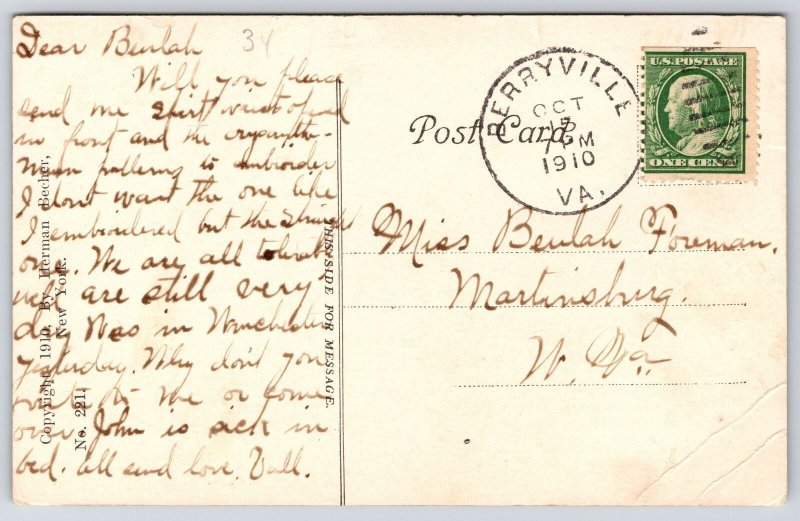 Dear Beulah
Will you please
send me shirt waist opened
in front and the crysanthe-
mum pattern to embroider
I dont want the one like
I embroidered but the
one. We are all tolerable
well are still very
dry Was in Winchester
yesterday. Why don't you
write to me or come
over. John is sick in
bed. all send love.
34
Copyright, 1910, By Herman Becher,
New York.
No. 221.
THIS SIDE FOR MESSAGE.
Post Card.
BERRYVILLE
OCT
PM
1910
VA.
U.S. POSTAGE
ONE CENT
Miss Beulah Foreman.
Martinsburg.
W. Va